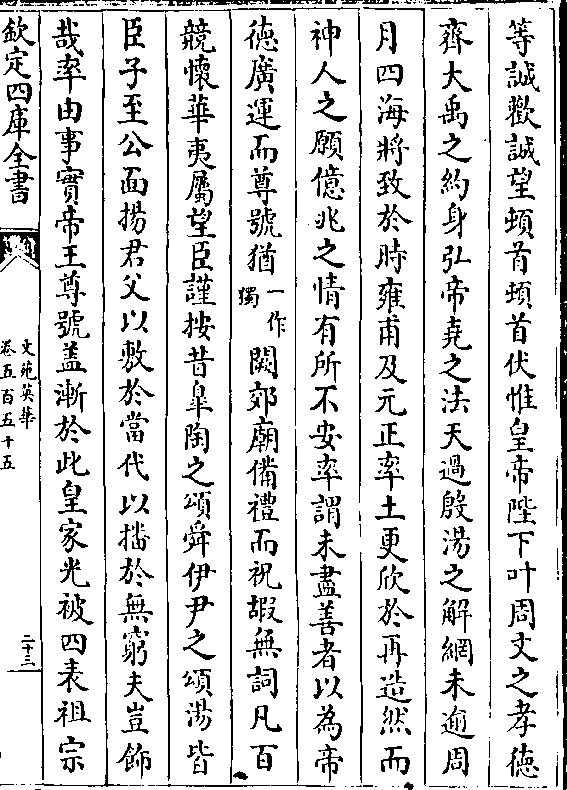 等誠歡誠望頓首頓首伏惟皇帝陛下叶周文之孝德
齊大禹之約身弘帝堯之法天過殷湯之解網未逾周
月四海將致於時雍甫及元正率土更欣於再造然而
神人之願億兆之情有所不安率謂未盡善者以為帝
德廣運而尊號猶一作獨闕郊廟備禮而祝嘏無詞凡百
競懷華夷屬望臣謹按昔臯陶之頌舜伊尹之頌湯皆
臣子至公面揚君父以敷於當代以播於無窮夫豈飾
哉率由事實帝王尊號盖漸於此皇家光被四表祖宗
欽定四庫全書
文苑英華
卷五百五十五
二十三